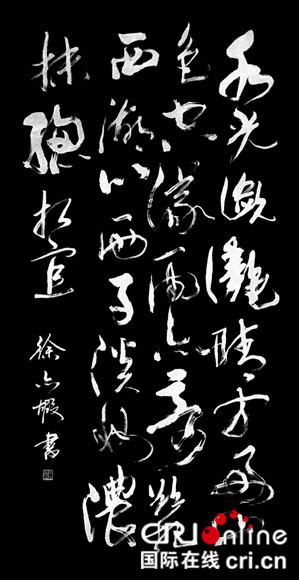 水光瀲灧晴方好山
色空濛雨亦奇欲把
西湖比西子淡妝濃
抹總相宜
徐書
CRI Online
国际在线 cri.cn